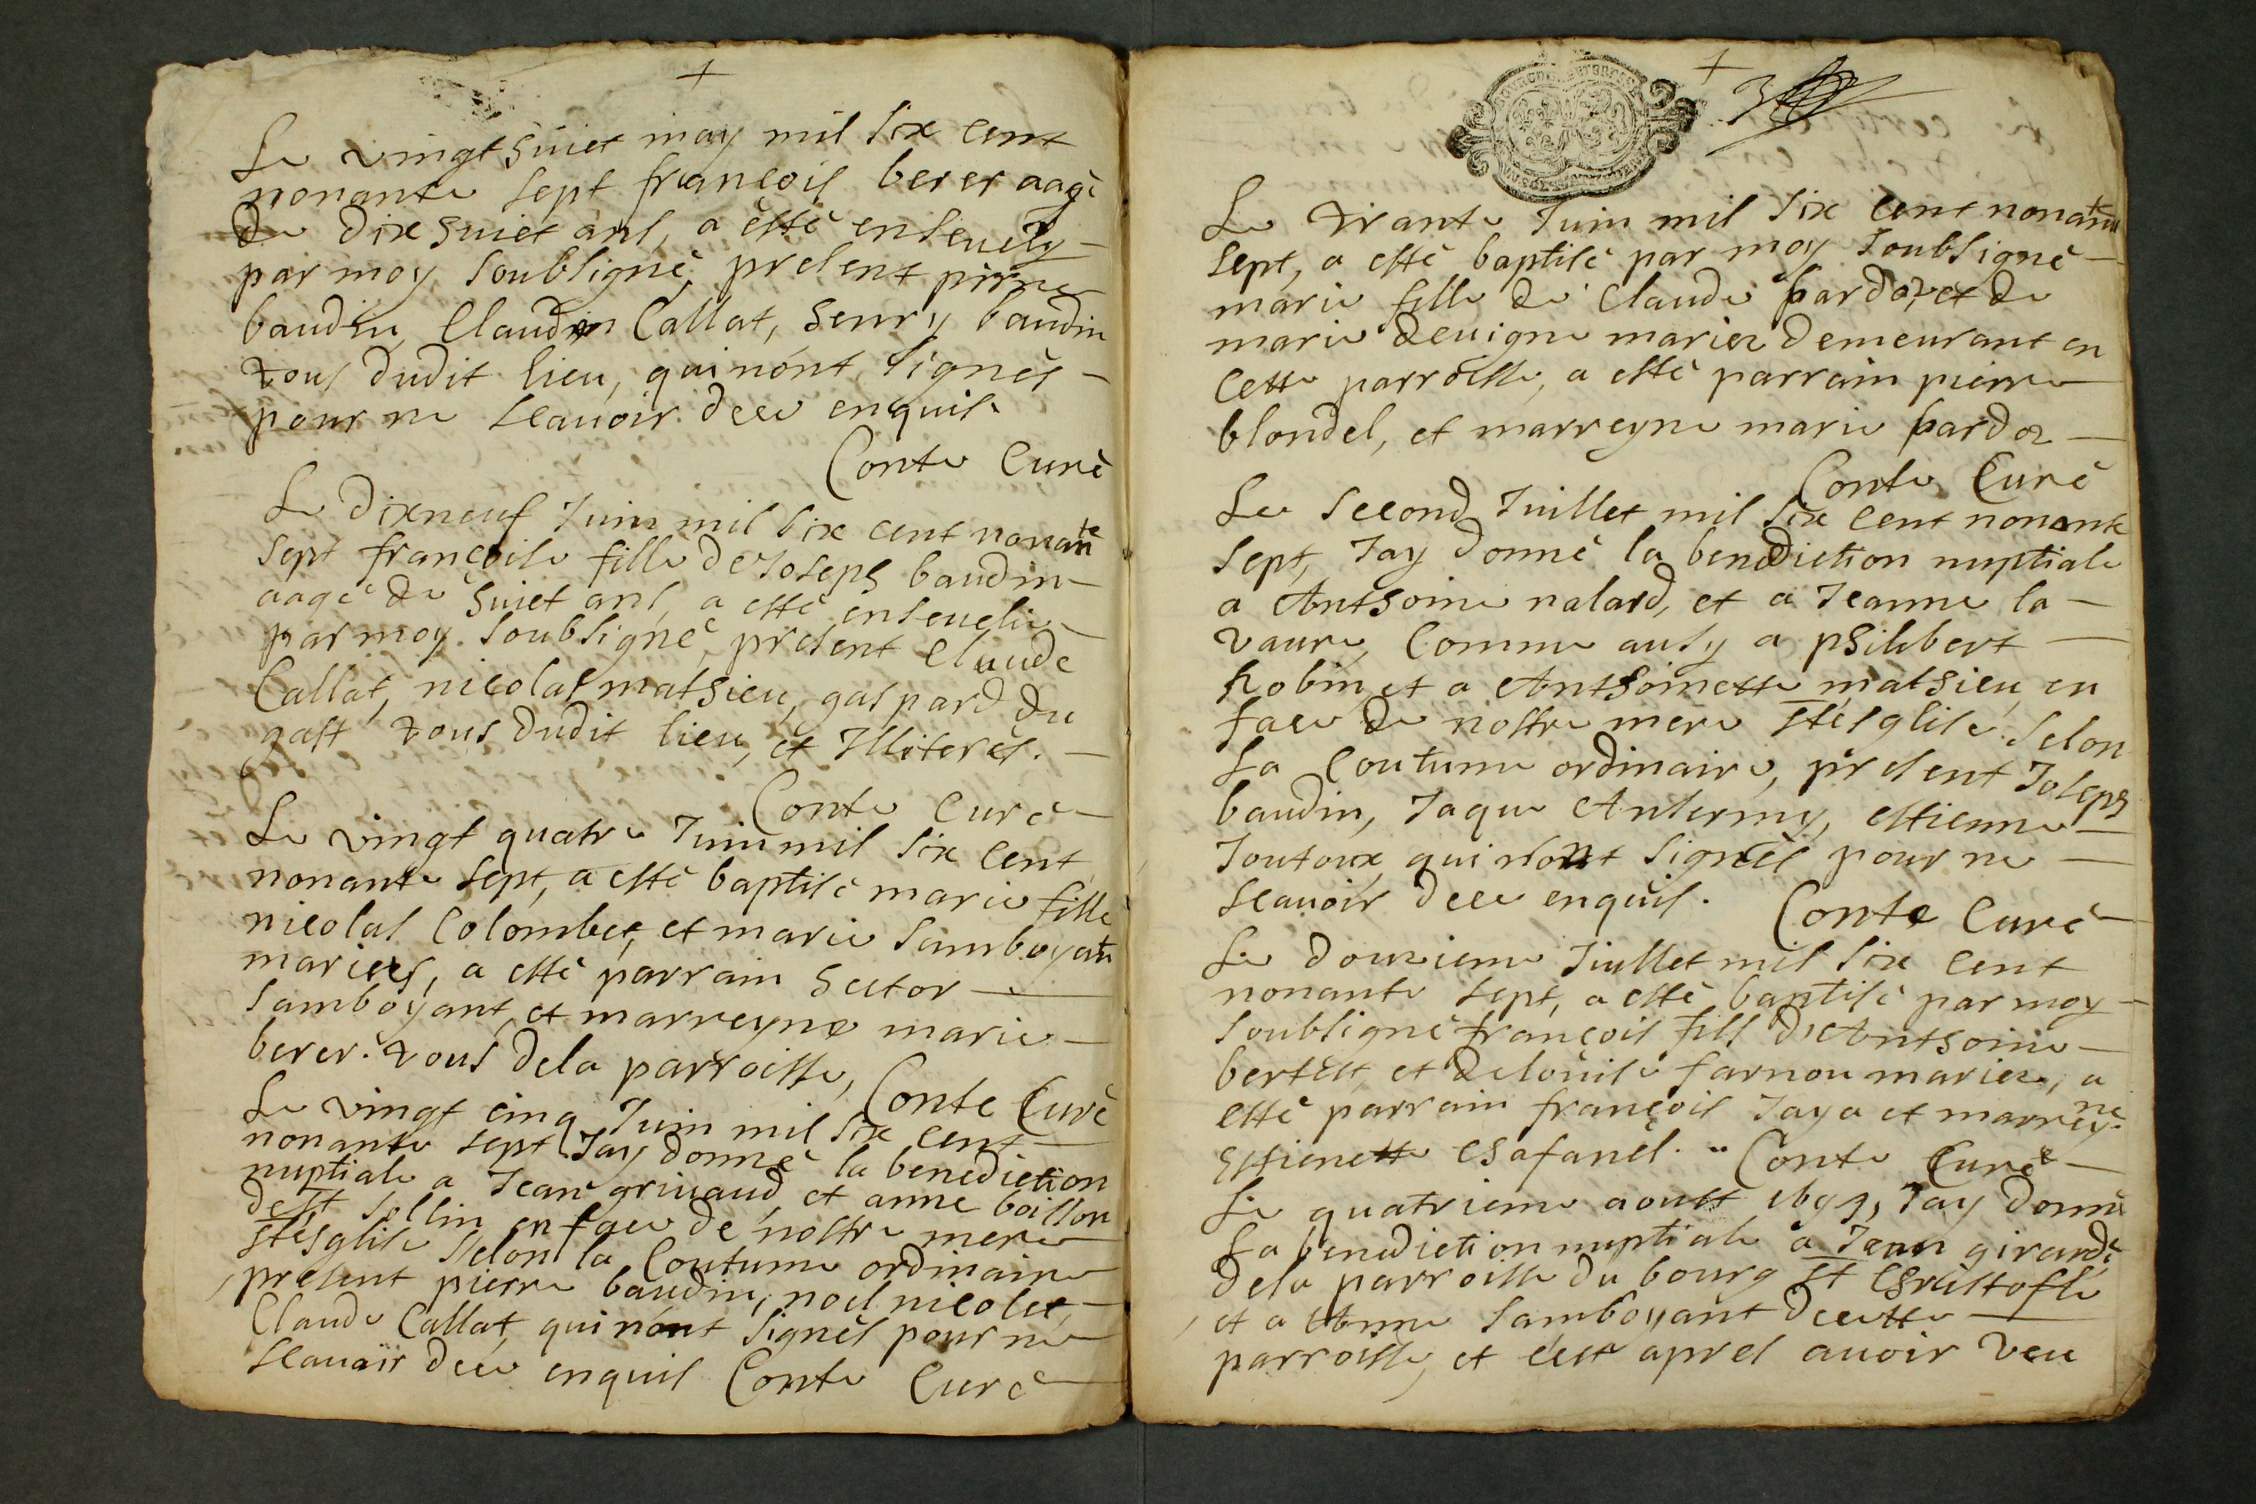 +
Le vingt huiet may mil six cent
nonante sept françois berer aagé
de dix huiet ans, a esté ensevely
par moy soubsigné, present pierre
baudin, Claude Callat, henry baudin
tous dudit lieu, qui nont signés
pour ne scauoir dece enquis
Conte Curé
Le dixneuf Juin mil six cent nonante
sept françoise fille de Joseph baudin
aagé de huiet ans, a esté enseuelie
par moy soubsigné, present Claude
Callat, nicolas mathieu, gaspard du
gast tous dudit lieu, et Illiterés.
Conte Curé
Le vingt quatre Juin mil six cent
nonante sept, a esté baptisé marie fille
nicolas Colombet, et marie Samboyant
mariers, a esté parrain hector
Samboyant, et marreyne marie
berer. tous dela parroisse, Conte Curé
Le vingt cinq Juin mil six cent
nonante sept Jay donné la benediction
nuptiale a Jean grivaud, et anne boisson
de st sollin en face de nostre mere
ste esglise selon la Coutume ordinaire
present pierre baudin, noel nicolet,
Claude Callat, qui nont signés pour ne
scauoir dece enquis Conte Curé
+
3
Le trante Juin mil six cent nonante
sept, a esté baptisé par moy soubsigné
marie fille de Claude bardoz, et de
marie deuigne mariez demeurant en
cette parroisse, a esté parrain pierre
blondel, et marreyne marie bardoz
Conte Curé
Le second Juillet mil six cent nonante
sept, Jay donné la benediction nuptiale
a Anthoine nalard, et a Jeanne la
vaure, Comme ausy a philibert
Robin, et a Anthoinette mathieu, en
face de nostre mere ste esglise selon
La Coutume ordinaire, present Joseph
baudin, Jaque Antermy, estienne
Joutoux, qui nont signés pour ne
scauoir dece enquis. Conte Curé
Le douzieme Juillet mil six cent
nonante sept, a esté baptisé par moy
soubsigné françois fils d'Anthoine
bertest, et de Louise farnou mariez, a
esté parrain françois Jaya et marreyne
estienette Chafanel. Conte Curé
Le quatrieme aoust 1697, Jay donné
La benediction nuptiale a Jean girardé
dela parroisse du bourg st Christofle
et a Anne Samboyant decette
parroisse, et cest apres auoir veu